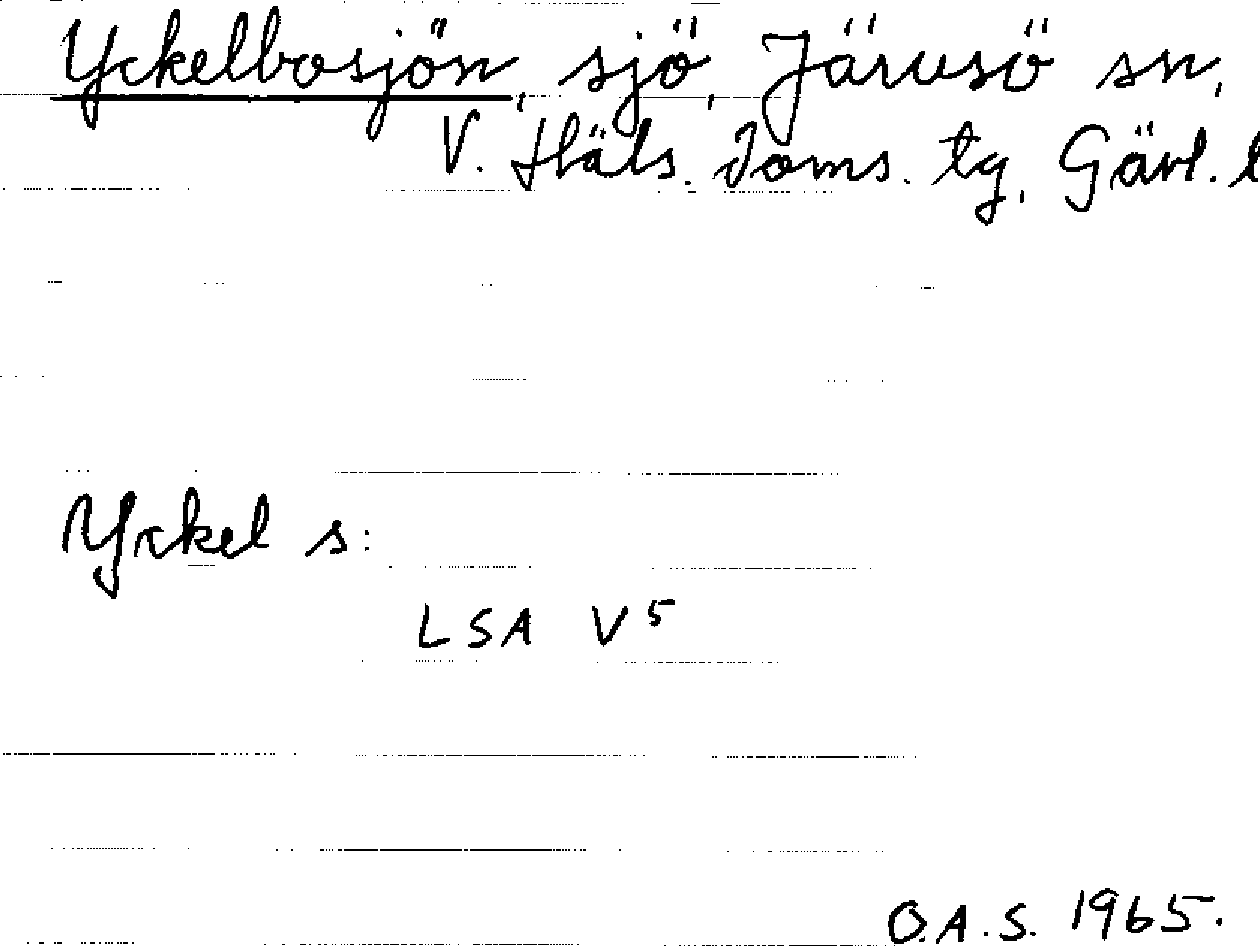 Yckelbosjön, sjö, Järvsö sn,
V. Häls. Doms. tg, Gävl. l
Yckel s:
LSA V5
O.A.S. 1965.